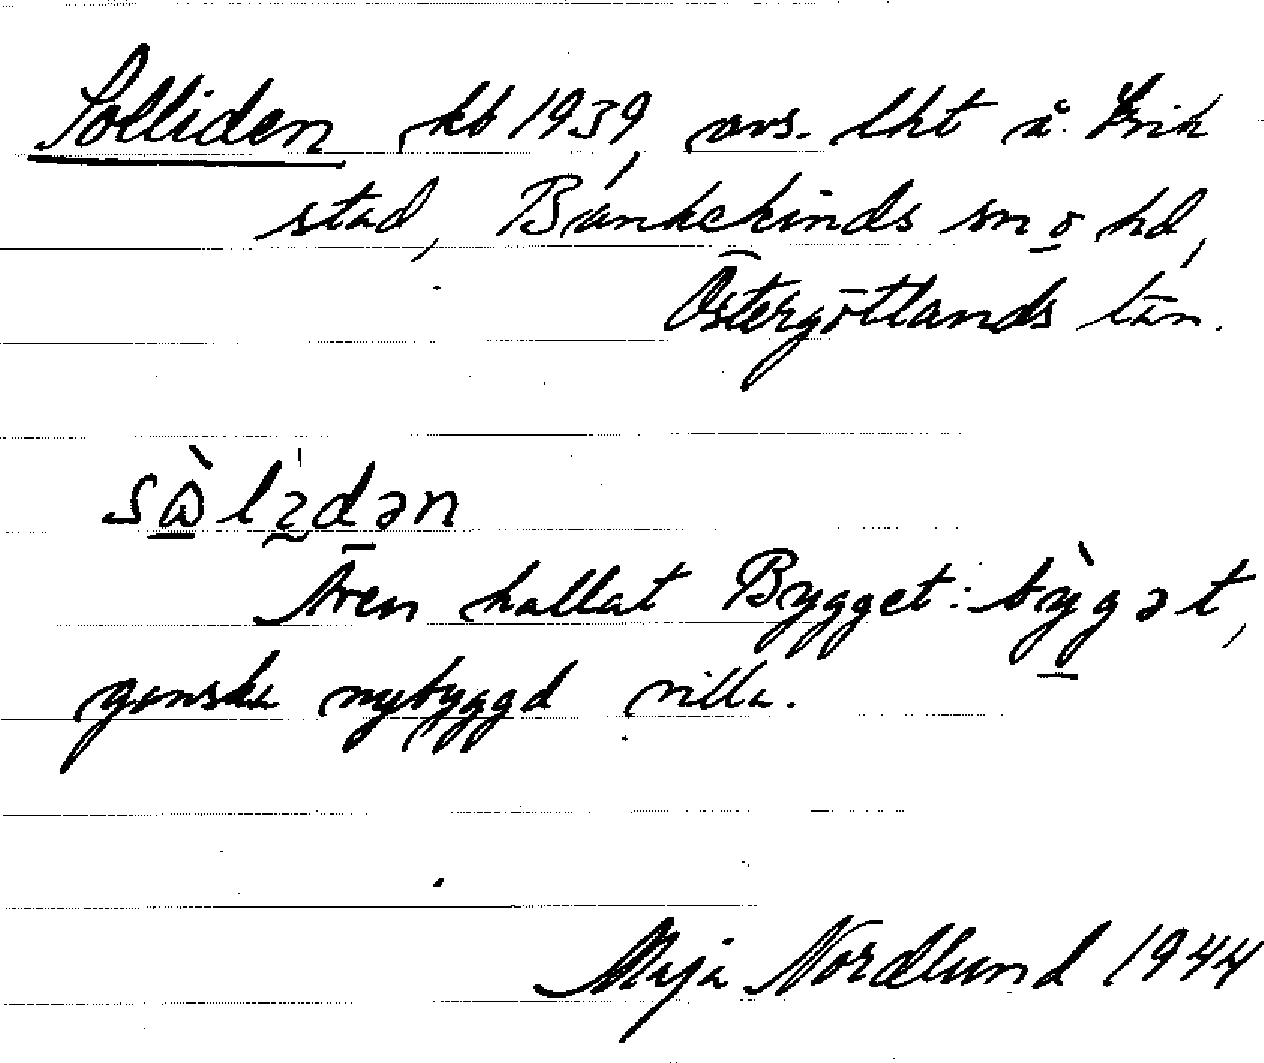 Solliden kb 1939, avs. lht å Erik
stad, Bankekinds sn o hd,
Östergötlands län.
Även kallat Bygget:
ganska nybyggd villa.
Maja Nordlund 1944